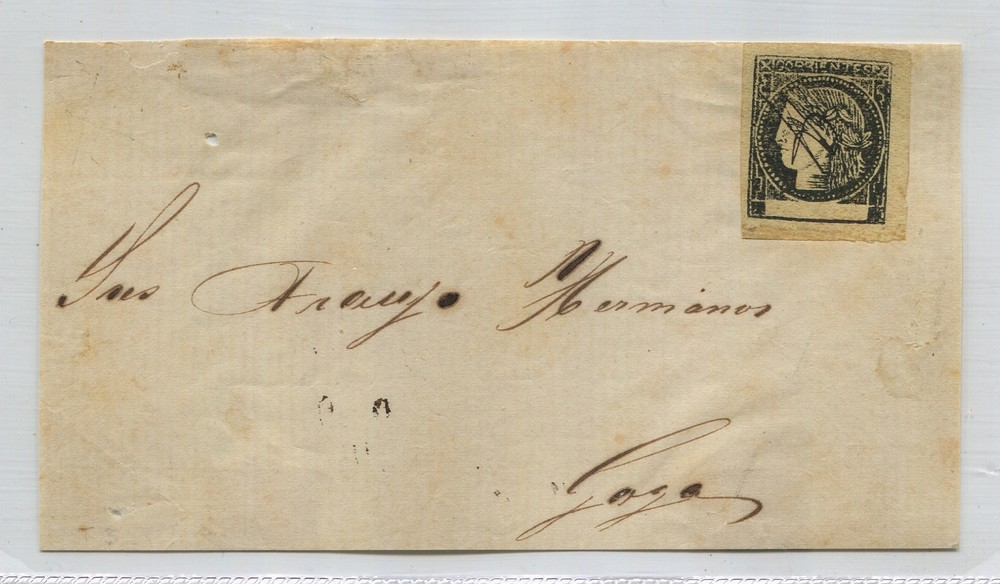 CORRIENTES
Sres Araujo Hermanos
Goya